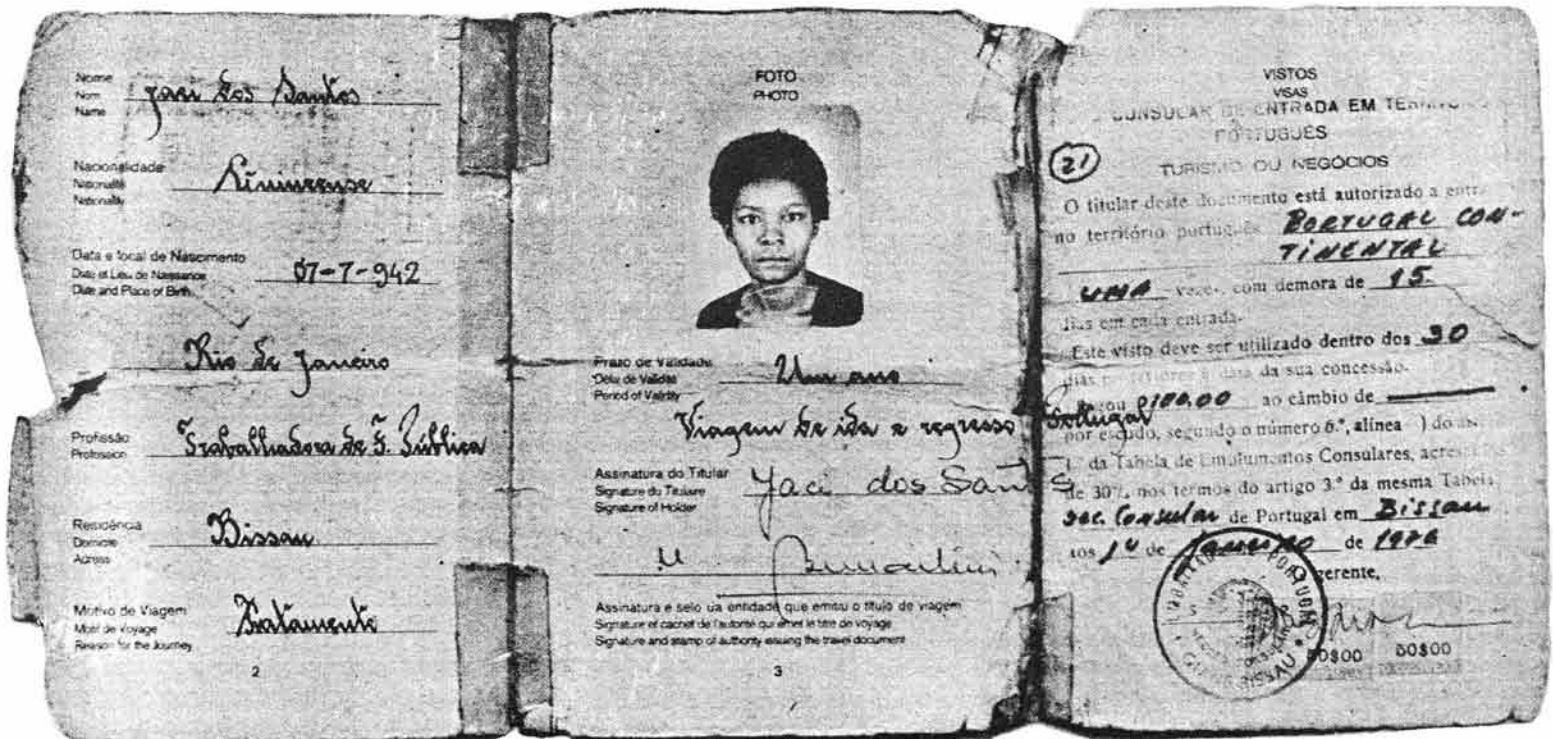 Nome
Nom
Name
Jaci dos Santos
Nacionalidade
Nationalité
Nationality
Data e local de Nascimento
Date et Lieu de Naissance
Date and Place of Birth
07-7-942
Rio de Janeiro
Profissão
Profession
Trabalhadora de F. Pública
Residência
Domicile
Adress
Bissau
Motivo de Viagem
Motif de Voyage
Reason for the Journey
Tratamento
2
FOTO
PHOTO
Prazo de Validade
Délai de Validité
Period of Validity
Um ano
Viagem de ida e regresso Portugal
Assinatura do Titular
Signature du Titulaire
Signature of Holder
Yaci dos Santos
Assinatura e selo da entidade que emitiu o título de viagem
Signature et cachet de l'autorité qui émet le titre de voyage
Signature and stamp of authority issuing the travel document
3
VISTOS
VISAS
CONSULAR DE ENTRADA EM
PORTUGUÊS
21
TURISMO OU NEGÓCIOS
O titular deste documento está autorizado a
no território português PORTUGAL CON-
TINENTAL
UMA vezes, com demora de 15
dias em cada entrada.
Este visto deve ser utilizado dentro dos 30
dias da sua concessão.
ao câmbio de
por escudo, segundo o número 6.º, alínea ) do
da Tabela de Emolumentos Consulares,
de 30% nos termos do artigo 3.º da mesma Tabela
Sec. Consular de Portugal em Bissau
aos de Janeiro de
gerente,
GUINÉ BISSAU
50$00 50$00